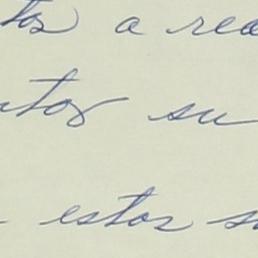 tos a rea
ntos su
estos s